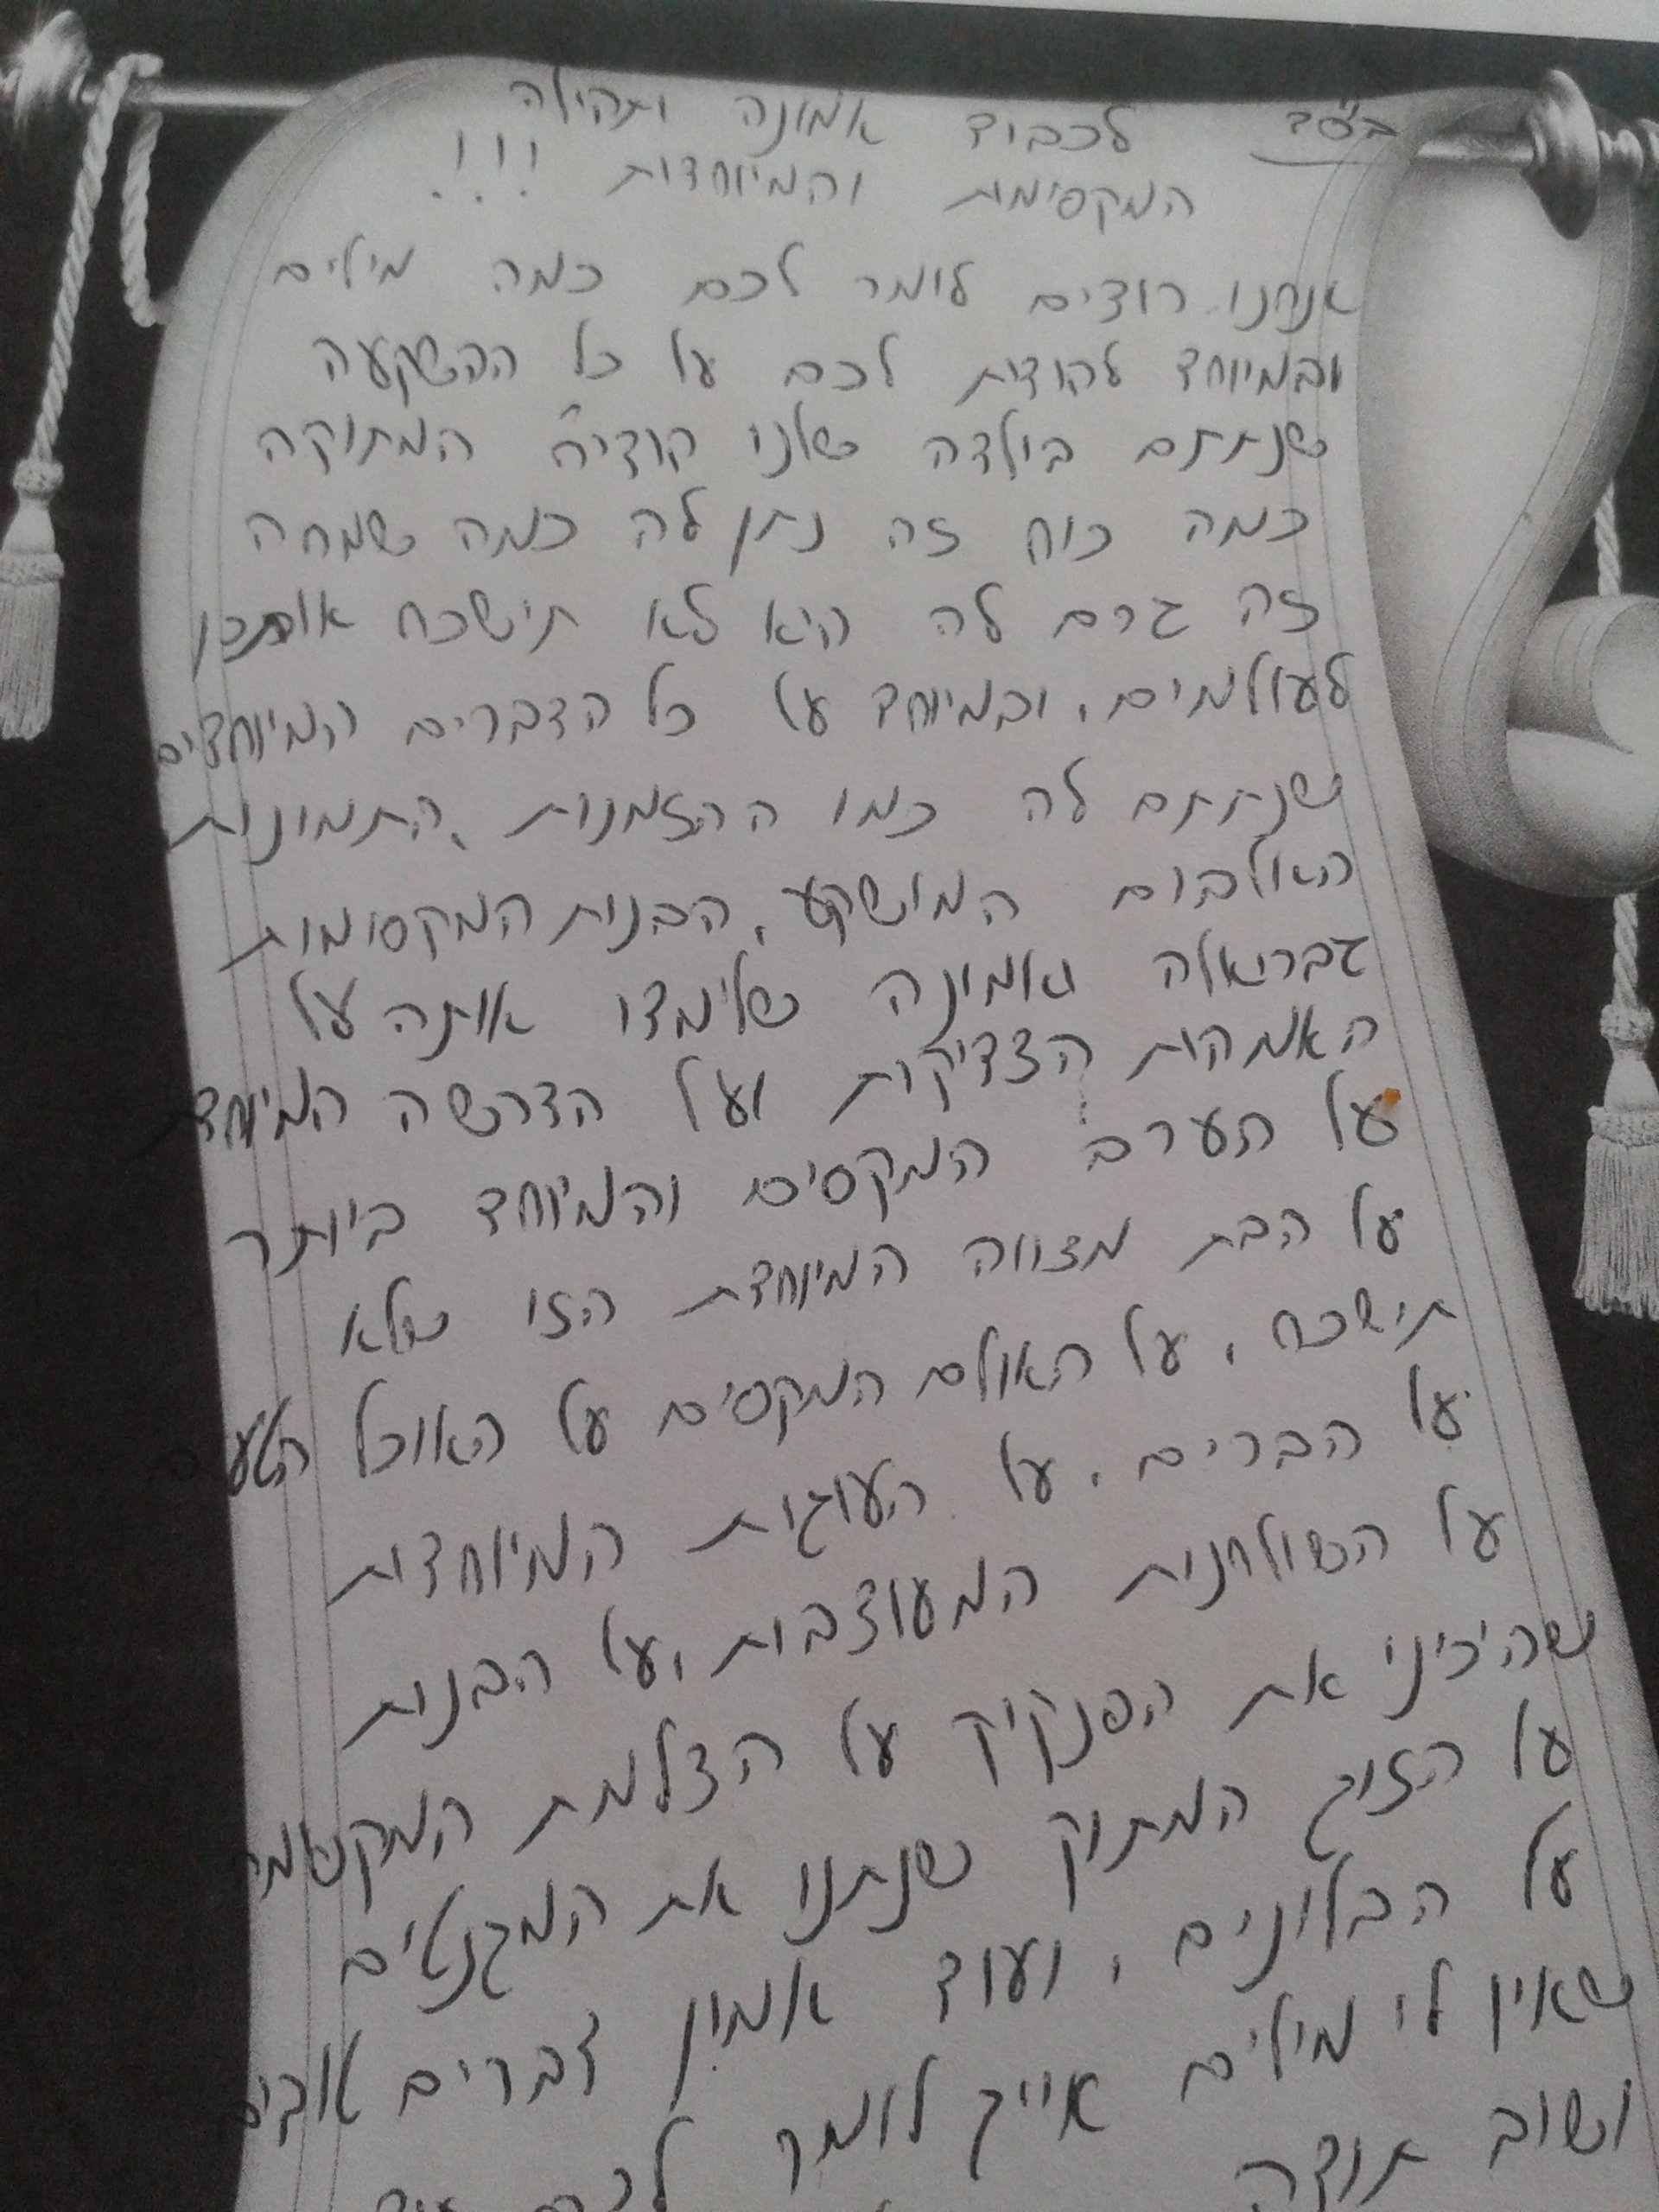 בס"ד לכבוד אמונה ותהילה
המקסימות והמיוחדות !!!
אנחנו רוצים לומר לכם כמה מילים
ובמיוחד להודות לכם על כל ההשקעה
שנתתם בילדה שלנו הודיה המתוקה
כמה כוח זה נתן לה כמה שמחה
זה גרם לה היא לא תישכח אותכן
לעולמים, ובמיוחד על כל הדברים המיוחדים
שנתתם לה כמו ההזמנות, התמונות
האולבום המושקע, הבנות המקסומות
גבריאלה ואמינה שלימדו אותה על
האמהות הצדיקות ועל הדרשה המיוחדת
על הערב המקסים והמיוחד ביותר
על הבת מצווה המיוחדת הזו שלא
תישכח, על האולם המקסים על האוכל הטעים
על הברים, על העוגות המיוחדות
על השולחנות המעוצבות, על הבנות
שהיכינו את הפנקיק על הצלמת המקסימה
על הזוג המתוק שנתנו את המגנטים
על הבלונים, ועוד אמון דברים טובים
שאין לי מילים אייך לומר לכם
ושוב תודה